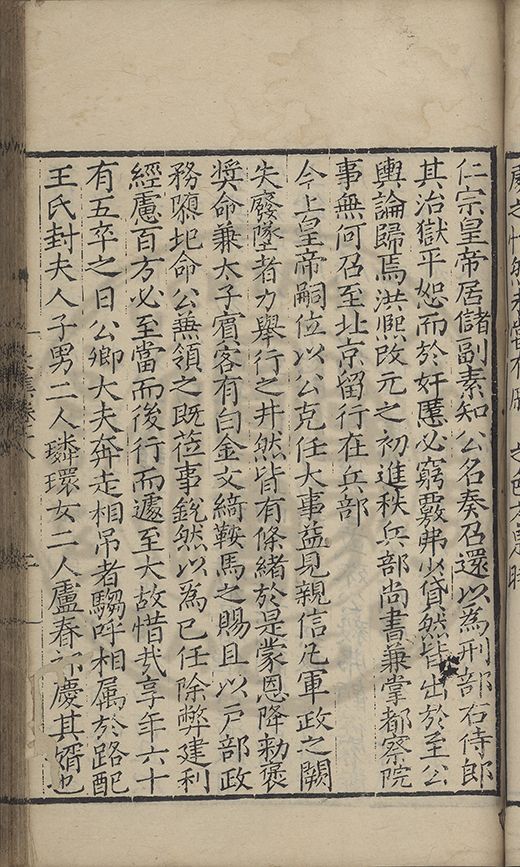 仁宗皇帝居儲副素知公名奏召還以為刑部右侍郎
其治獄平恕而於奸慝必窮覈弗少貸然皆出於至公
輿論歸焉洪熈改元之初進秩兵部尚書兼掌都察院
事無何召至北京留行在兵部
今上皇帝嗣位以公克任大事益見親信凡軍政之闕
失廢墜者力舉行之井然皆有條緒於是蒙恩降勑褒
奨命兼太子賓客有白金文綺鞍馬之賜且以戶部政
務隳圯命公兼領之既蒞事銳然以為已任除弊建利
經慮百方必至當而後行而遽至大故惜哉享年六十
有五卒之日公卿大夫奔走相吊者騶呼相属於路配
王氏封夫人子男二人璘環女二人盧春 慶其婿也